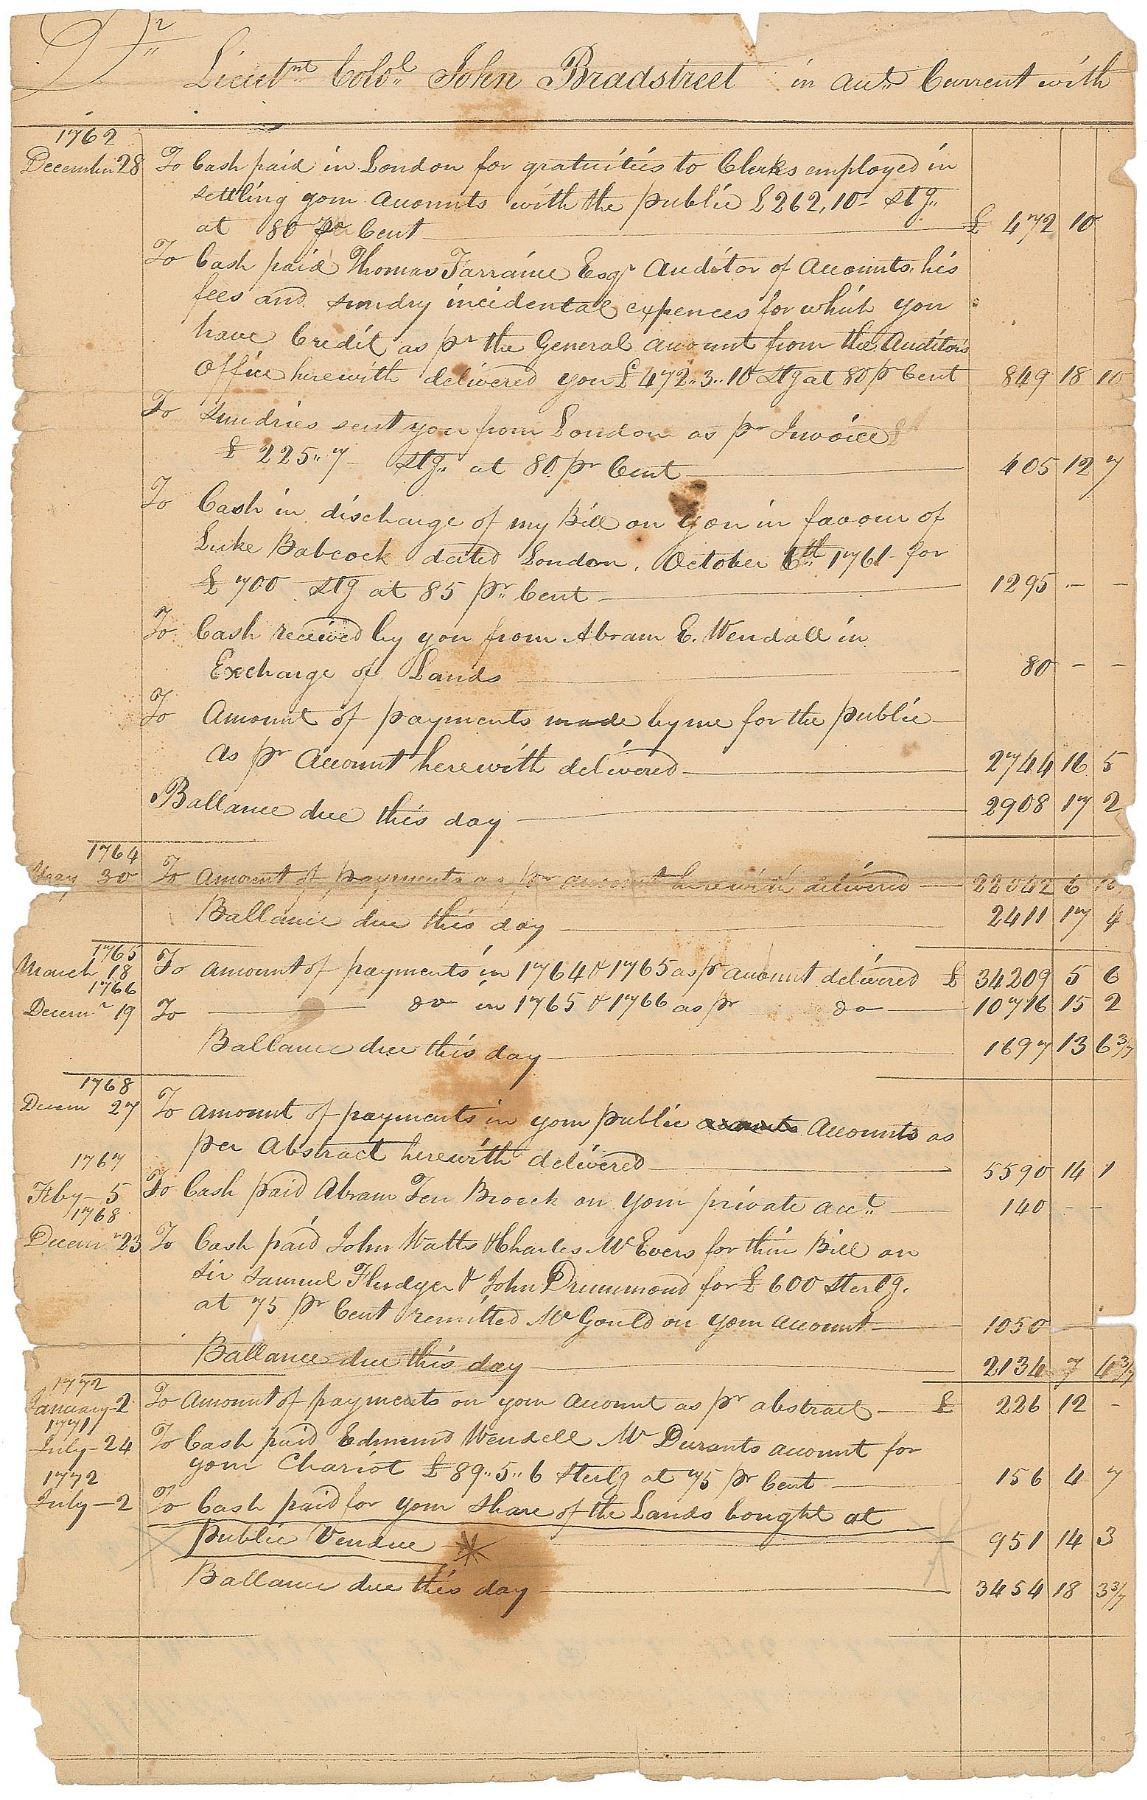 Dr
Lieutnt Colol John Bradstreet in acct Current with
1762
December 28 To Cash paid in London for gratuities to Clerks employed in
settling your Accounts with the public £262,10- Stg..
at 80 pr Cent £ 472 10
To Cash paid Thomas Farraine Esqr Auditor of Accounts, his
fees and sundry incidental expences for which you
have Credit as pr the General account from the Auditors
Office herewith delivered you £472..3..10 Stg at 80 pr Cent 849 18 10
To Sundries sent you from London as pr Invoice
£ 225..7 Stg.. at 80 pr Cent 405 12 7
To Cash in discharge of my Bill on you in favour of
Luke Babcock dated London, October 6th 1761 for
£ 700 Stg at 85 pr Cent 1295 - -
To Cash received by you from Abram E. Wendall in
Exchange of Lands 80 - -
To Amount of payments made by me for the public
as pr Account herewith delivered 2744 16 5
Ballance due this day 2908 17 2
1764
May 30 To amount of payments as pr account herewith delivered 22042 6
Ballance due this day 2411 17 4
1765
March 18 To amount of payments in 1764 & 1765 as pr account delivered £ 34209 5 6
1766
Decemr 19 To do in 1765 & 1766 as pr do 10716 15 2
Ballance due this day 1697 13 6 3/7
1768
Decem 27 To amount of payments in your public Accounts as
per Abstract herewith delivered 5590 14 1
1767
Feby 5 To Cash paid Abram Ten Broeck on your private acct. 140 - -
1768
Decemr 23 To Cash paid John Watts & Charles McEvers for their Bill on
Sir Samuel Fludyer & John Drummond for £600 Sterlg.
at 75 pr Cent remitted Mr Gould on your account 1050
Ballance due this day 2134 7 6 3/7
1772
January 2 To Amount of payments on your account as pr abstract £ 226 12 -
1771
July 24 To Cash paid Edmund Wendell Mr Durants account for
your Chariot £89..5..6 Sterlg at 75 pr Cent 156 4 7
1772
July 2 To Cash paid for your share of the Lands bought at
Public Vendue * 951 14 3
Ballance due this day 3454 18 3 3/7